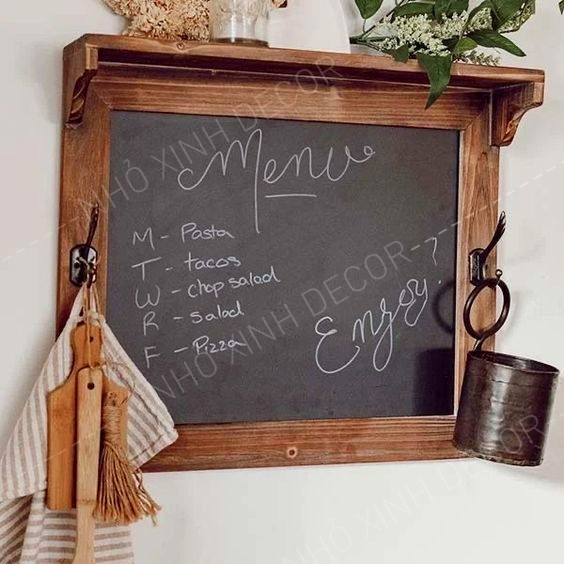 Menu
M - Pasta
T - tacos
W - chop salad
R - salad
F - Pizza
Enjoy!
NHỎ XINH DECOR
NHỎ XINH DECOR
NHỎ XINH DECOR
NHỎ XINH DECOR